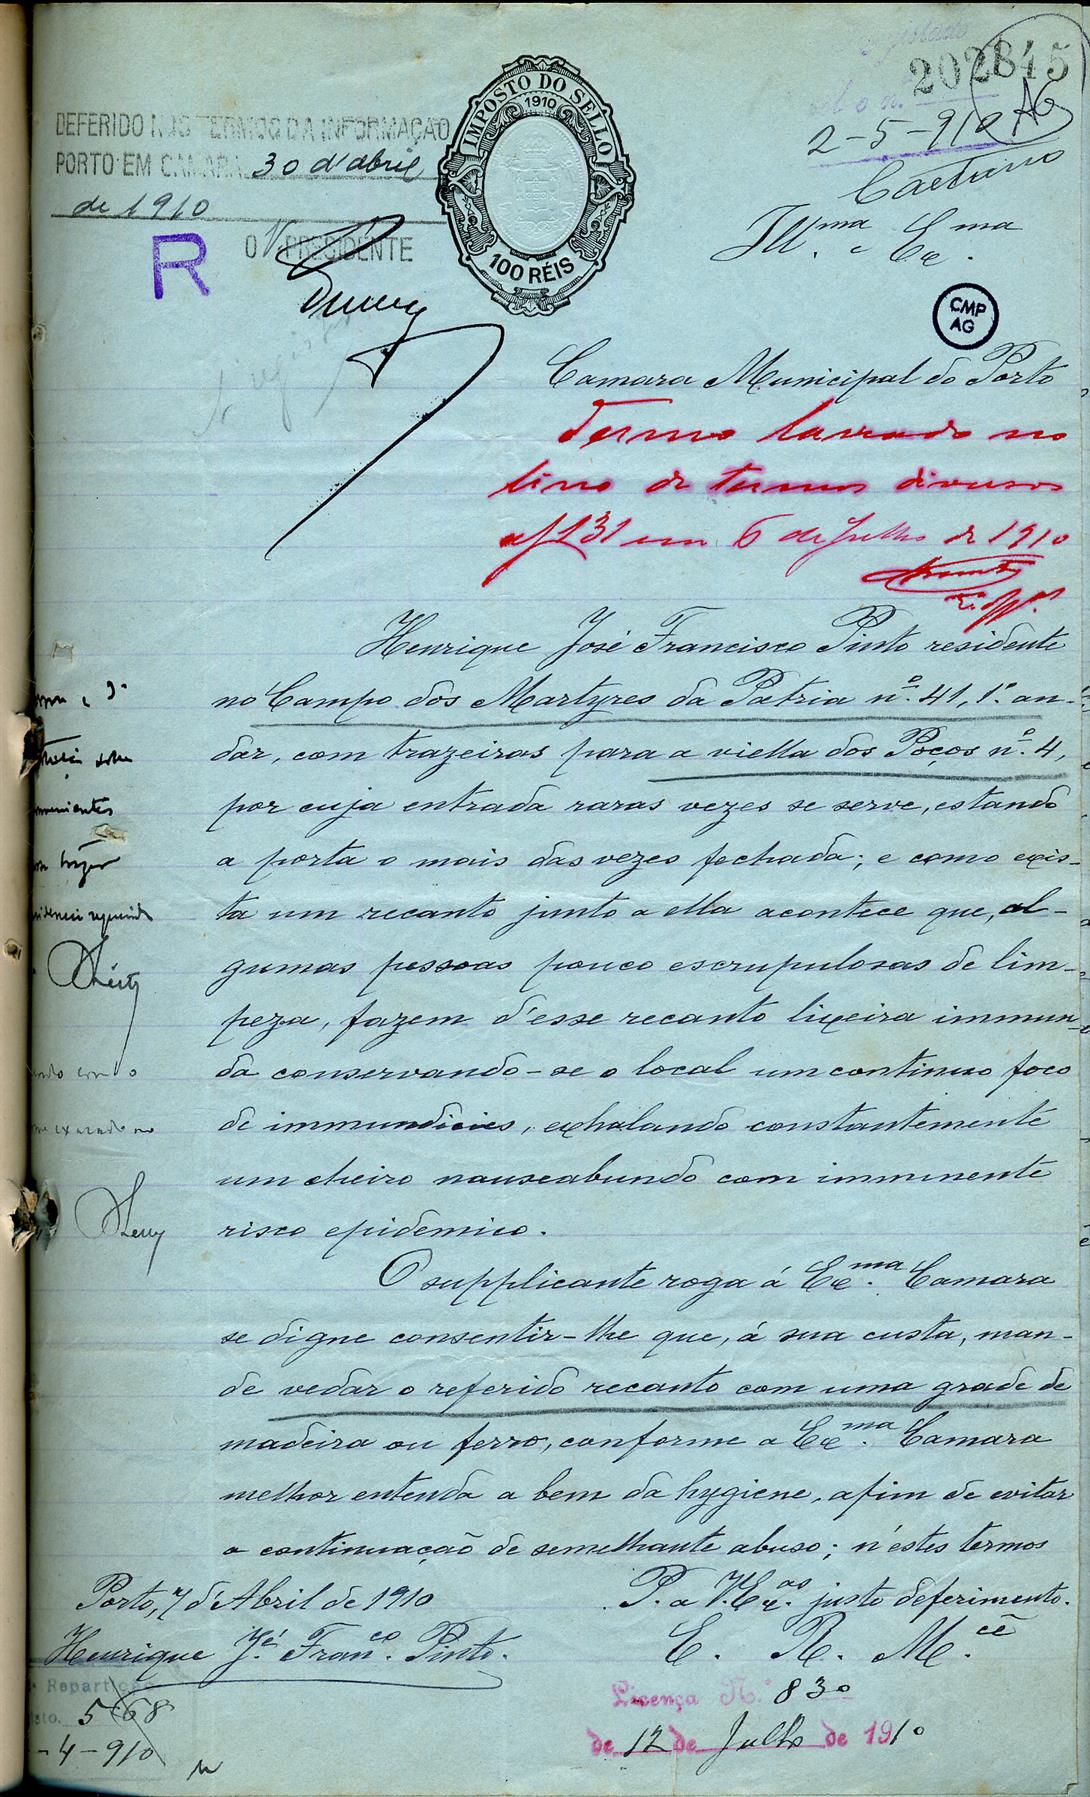 202845
AG
2-5-910
Caetano
DEFERIDO NOS TERMOS DA INFORMAÇÃO
PORTO EM CAMARA 30 d'abril
de 1910
O V. PRESIDENTE
R
IMPOSTO DO SELLO
1910
100 RÉIS
Ill.ma e Ex.ma
CMP
AG
Camara Municipal do Porto
Termo lavrado no
livro de termos diversos
af 131 em 6 de Julho de 1910
Henrique José Francisco Pinto residente
no Campo dos Martyres da Patria nº. 41, 1º. an-
dar, com trazeiras para a viella dos Poços nº. 4,
por cuja entrada raras vezes se serve, estando
a porta o mais das vezes fechada; e como exis-
ta um recanto junto a ella acontece que, al-
gumas pessoas pouco escrupulosas de lim-
peza, fazem d'esse recanto lixeira immun-
da conservando-se o local um continuo foco
de immundicies, exhalando constantemente
um cheiro nauseabundo com imminente
risco epidemico.
O supplicante roga á Ex.ma Camara
se digne consentir-lhe que, á sua custa, man-
de vedar o referido recanto com uma grade de
madeira ou ferro, conforme a Ex.ma Camara
melhor entenda a bem da hygiene, afim de evitar
a continuação de semelhante abuso; n'estes termos
P. a V. Ex.as justo deferimento.
Porto, 7 d'Abril de 1910
E. R. M.cê
Henrique Jé. Fran.co Pinto.
Repartição
568
-4-910
Licença N.º 830
de 12 de Julho de 1910